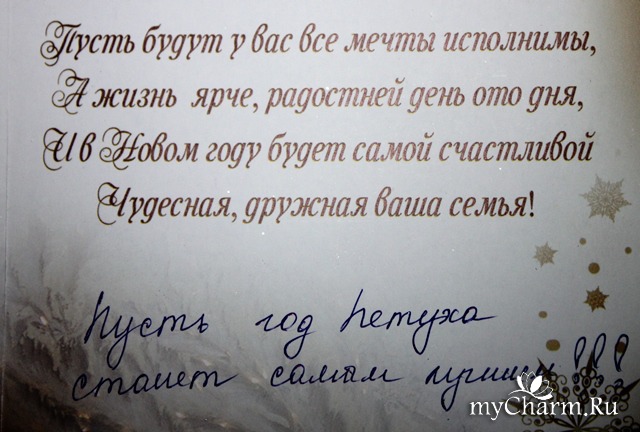 Пусть будут у вас все мечты исполнимы,
А жизнь ярче, радостней день ото дня,
И в Новом году будет самой счастливой
Чудесная, дружная ваша семья!
Пусть год Петуха
станет самым лучшим!!!
myCharm.Ru